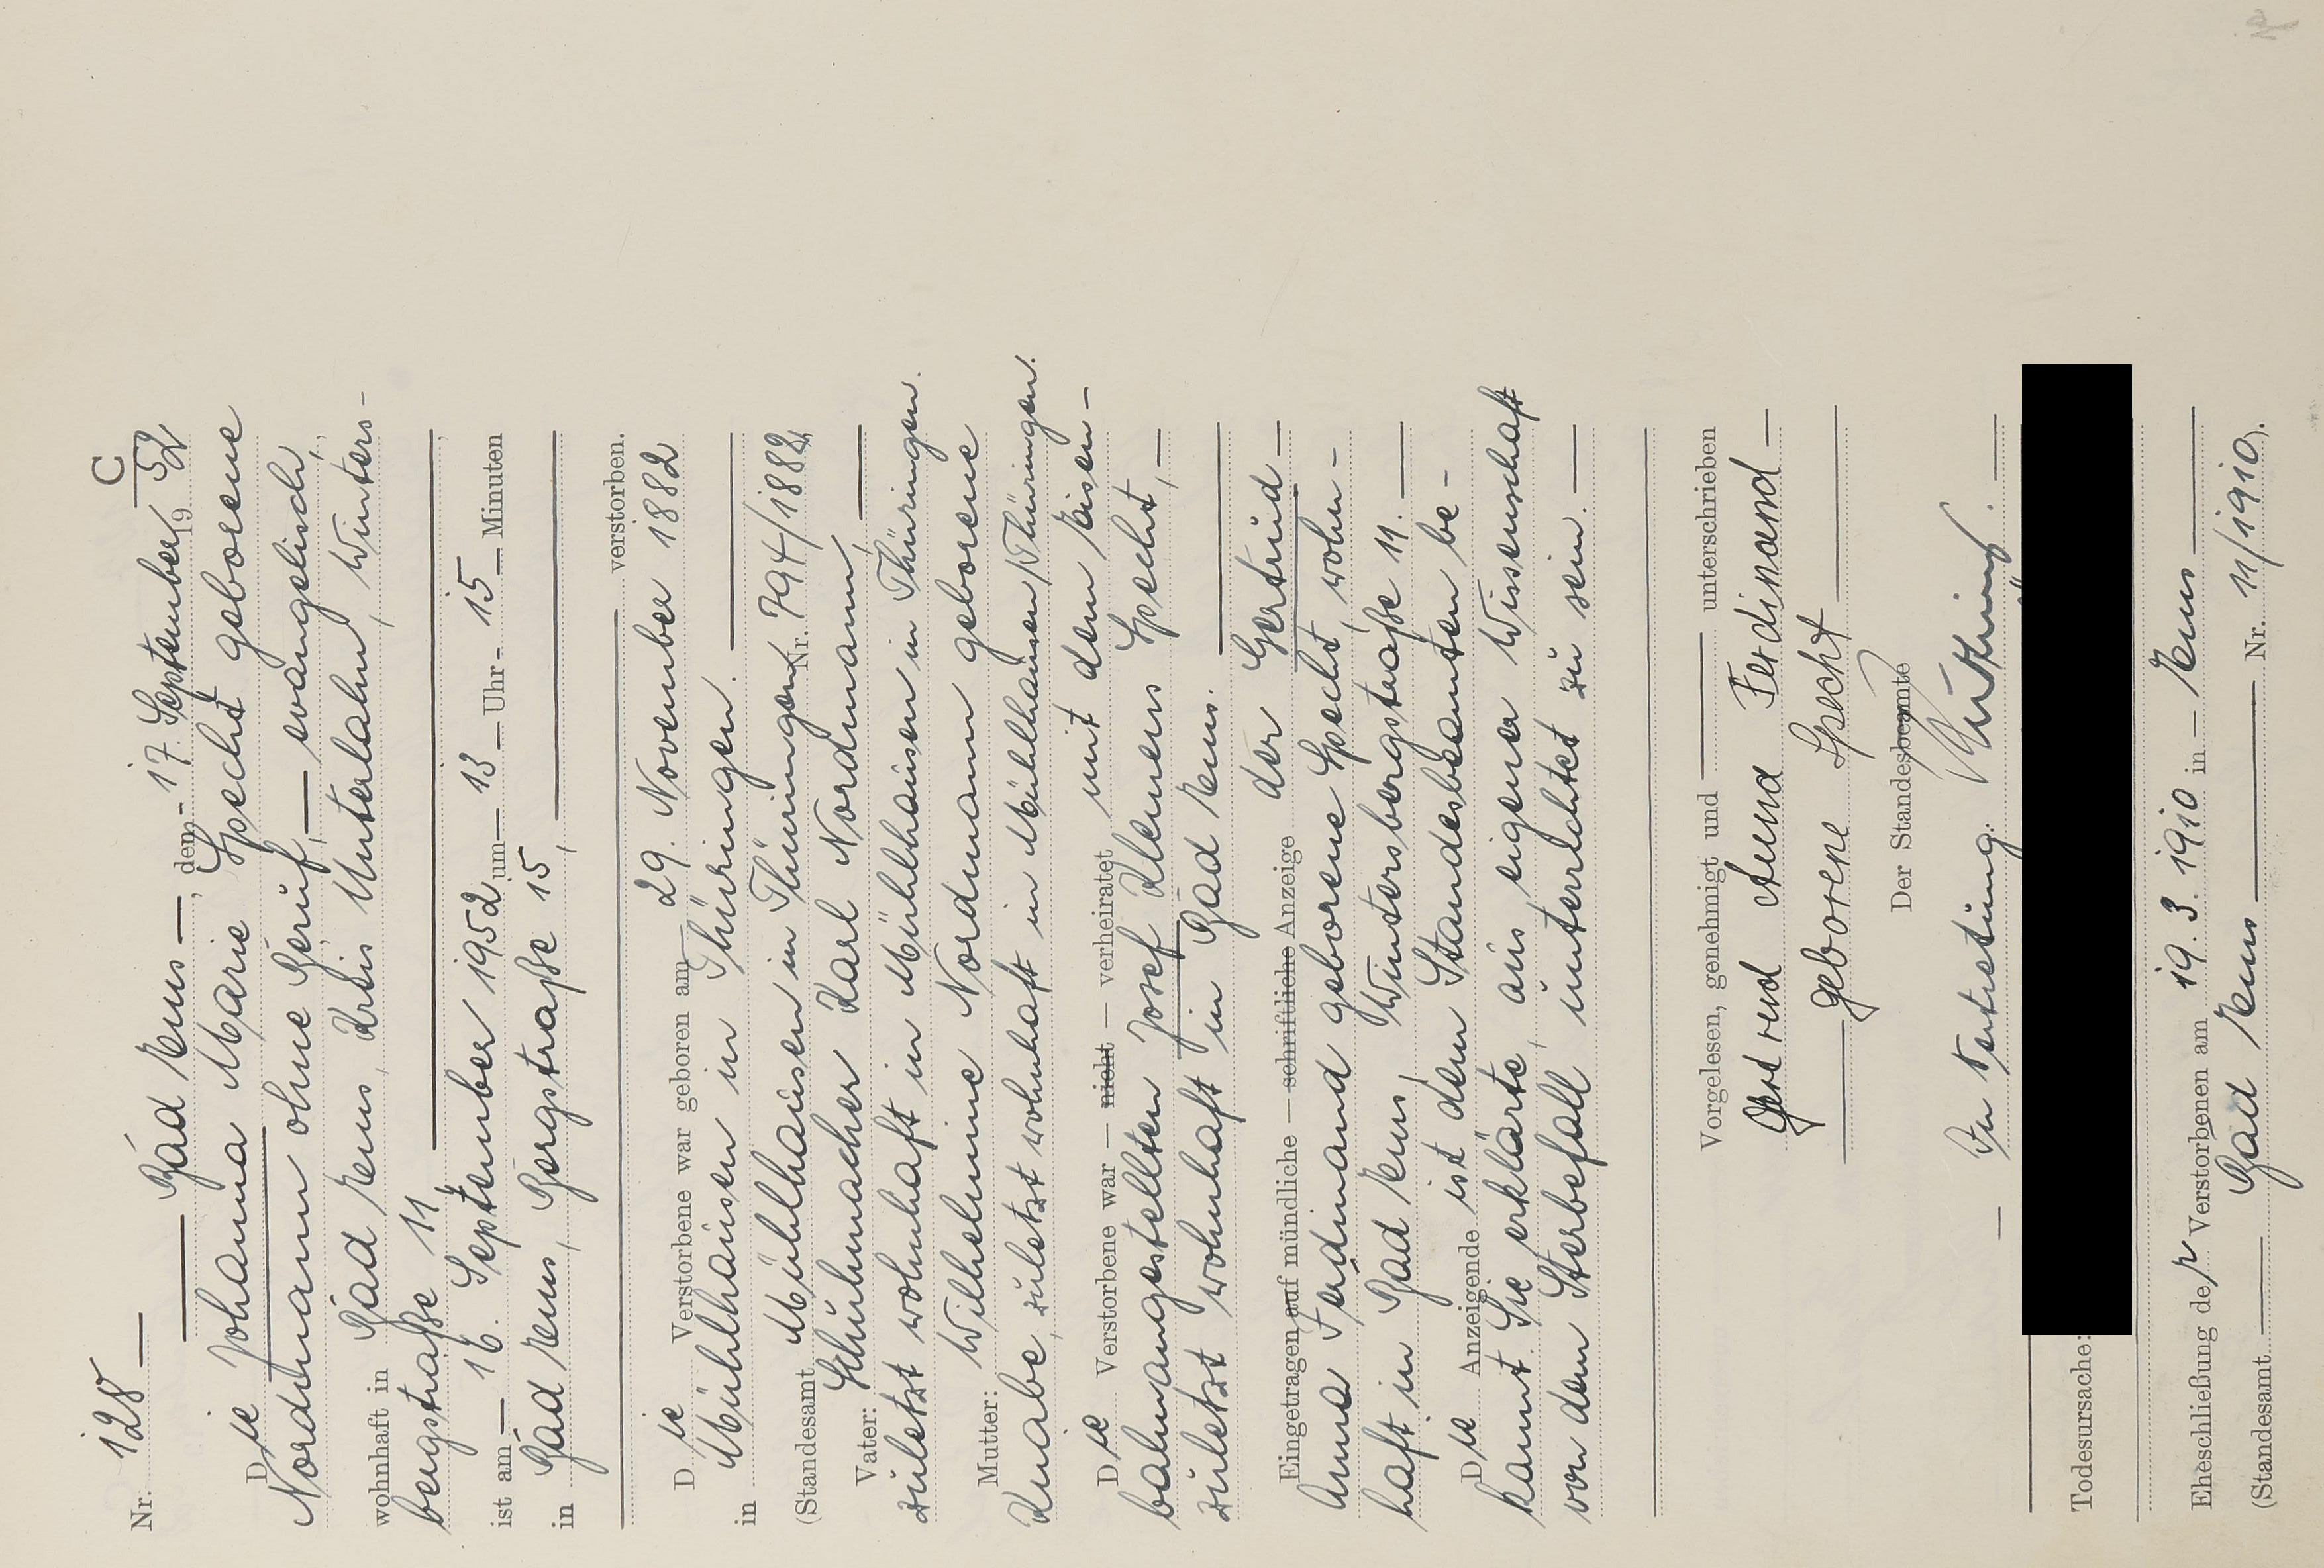 C
Nr. 128
Bad Ems, den 17. September 19 52
Die Johanna Marie Specht geborene
Nordmann ohne Beruf, evangelisch,
wohnhaft in Bad Ems, Kreis Unterlahn, Winters-
bergstraße 11
ist am 16. September 1952 um 13 Uhr 15 Minuten
in Bad Ems, Bergstraße 15,
verstorben.
Die Verstorbene war geboren am 29. November 1882
in Mühlhausen in Thüringen.
(Standesamt Mühlhausen in Thüringen Nr. 794/1882)
Vater: Schuhmacher Karl Nordmann,
zuletzt wohnhaft in Mühlhausen in Thüringen.
Mutter: Wilhelmine Nordmann geborene
Knabe, zuletzt wohnhaft in Mühlhausen/Thüringen.
Die Verstorbene war — nicht — verheiratet mit dem Eisen-
bahnangestellten Josef Klemens Specht,
zuletzt wohnhaft in Bad Ems.
Eingetragen auf mündliche — schriftliche Anzeige der Gertrud
Anna Ferdinand geborene Specht, wohn-
haft in Bad Ems, Wintersbergstraße 11.
Die Anzeigende ist dem Standesbeamten be-
kannt. Sie erklärte, aus eigener Wissenschaft
von dem Sterbefall unterrichtet zu sein.
Vorgelesen, genehmigt und unterschrieben
Gertrud Anna Ferdinand
geborene Specht
Der Standesbeamte
In Vertretung:
Todesursache:
Eheschließung der Verstorbenen am 19. 3. 1910 in Ems
(Standesamt Bad Ems Nr. 11/1910).